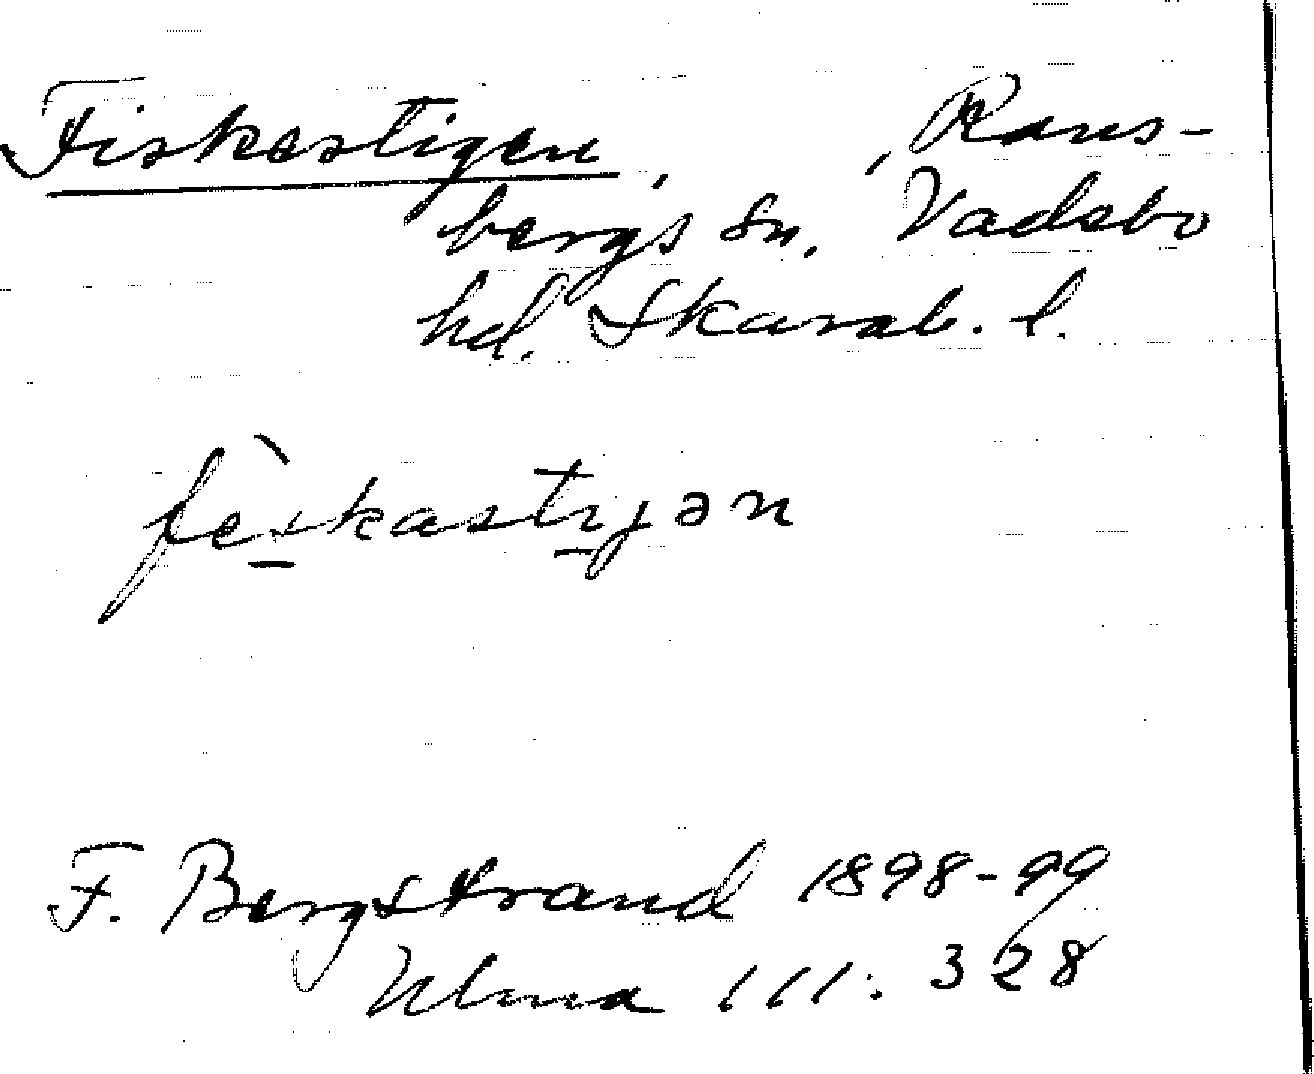 Fiskastigen, , Rans-
bergs sn. Vadsbo
hd. Skarab. l.
fèskastɩjən
F. Bergstrand 1898-99
Ulma 111: 328